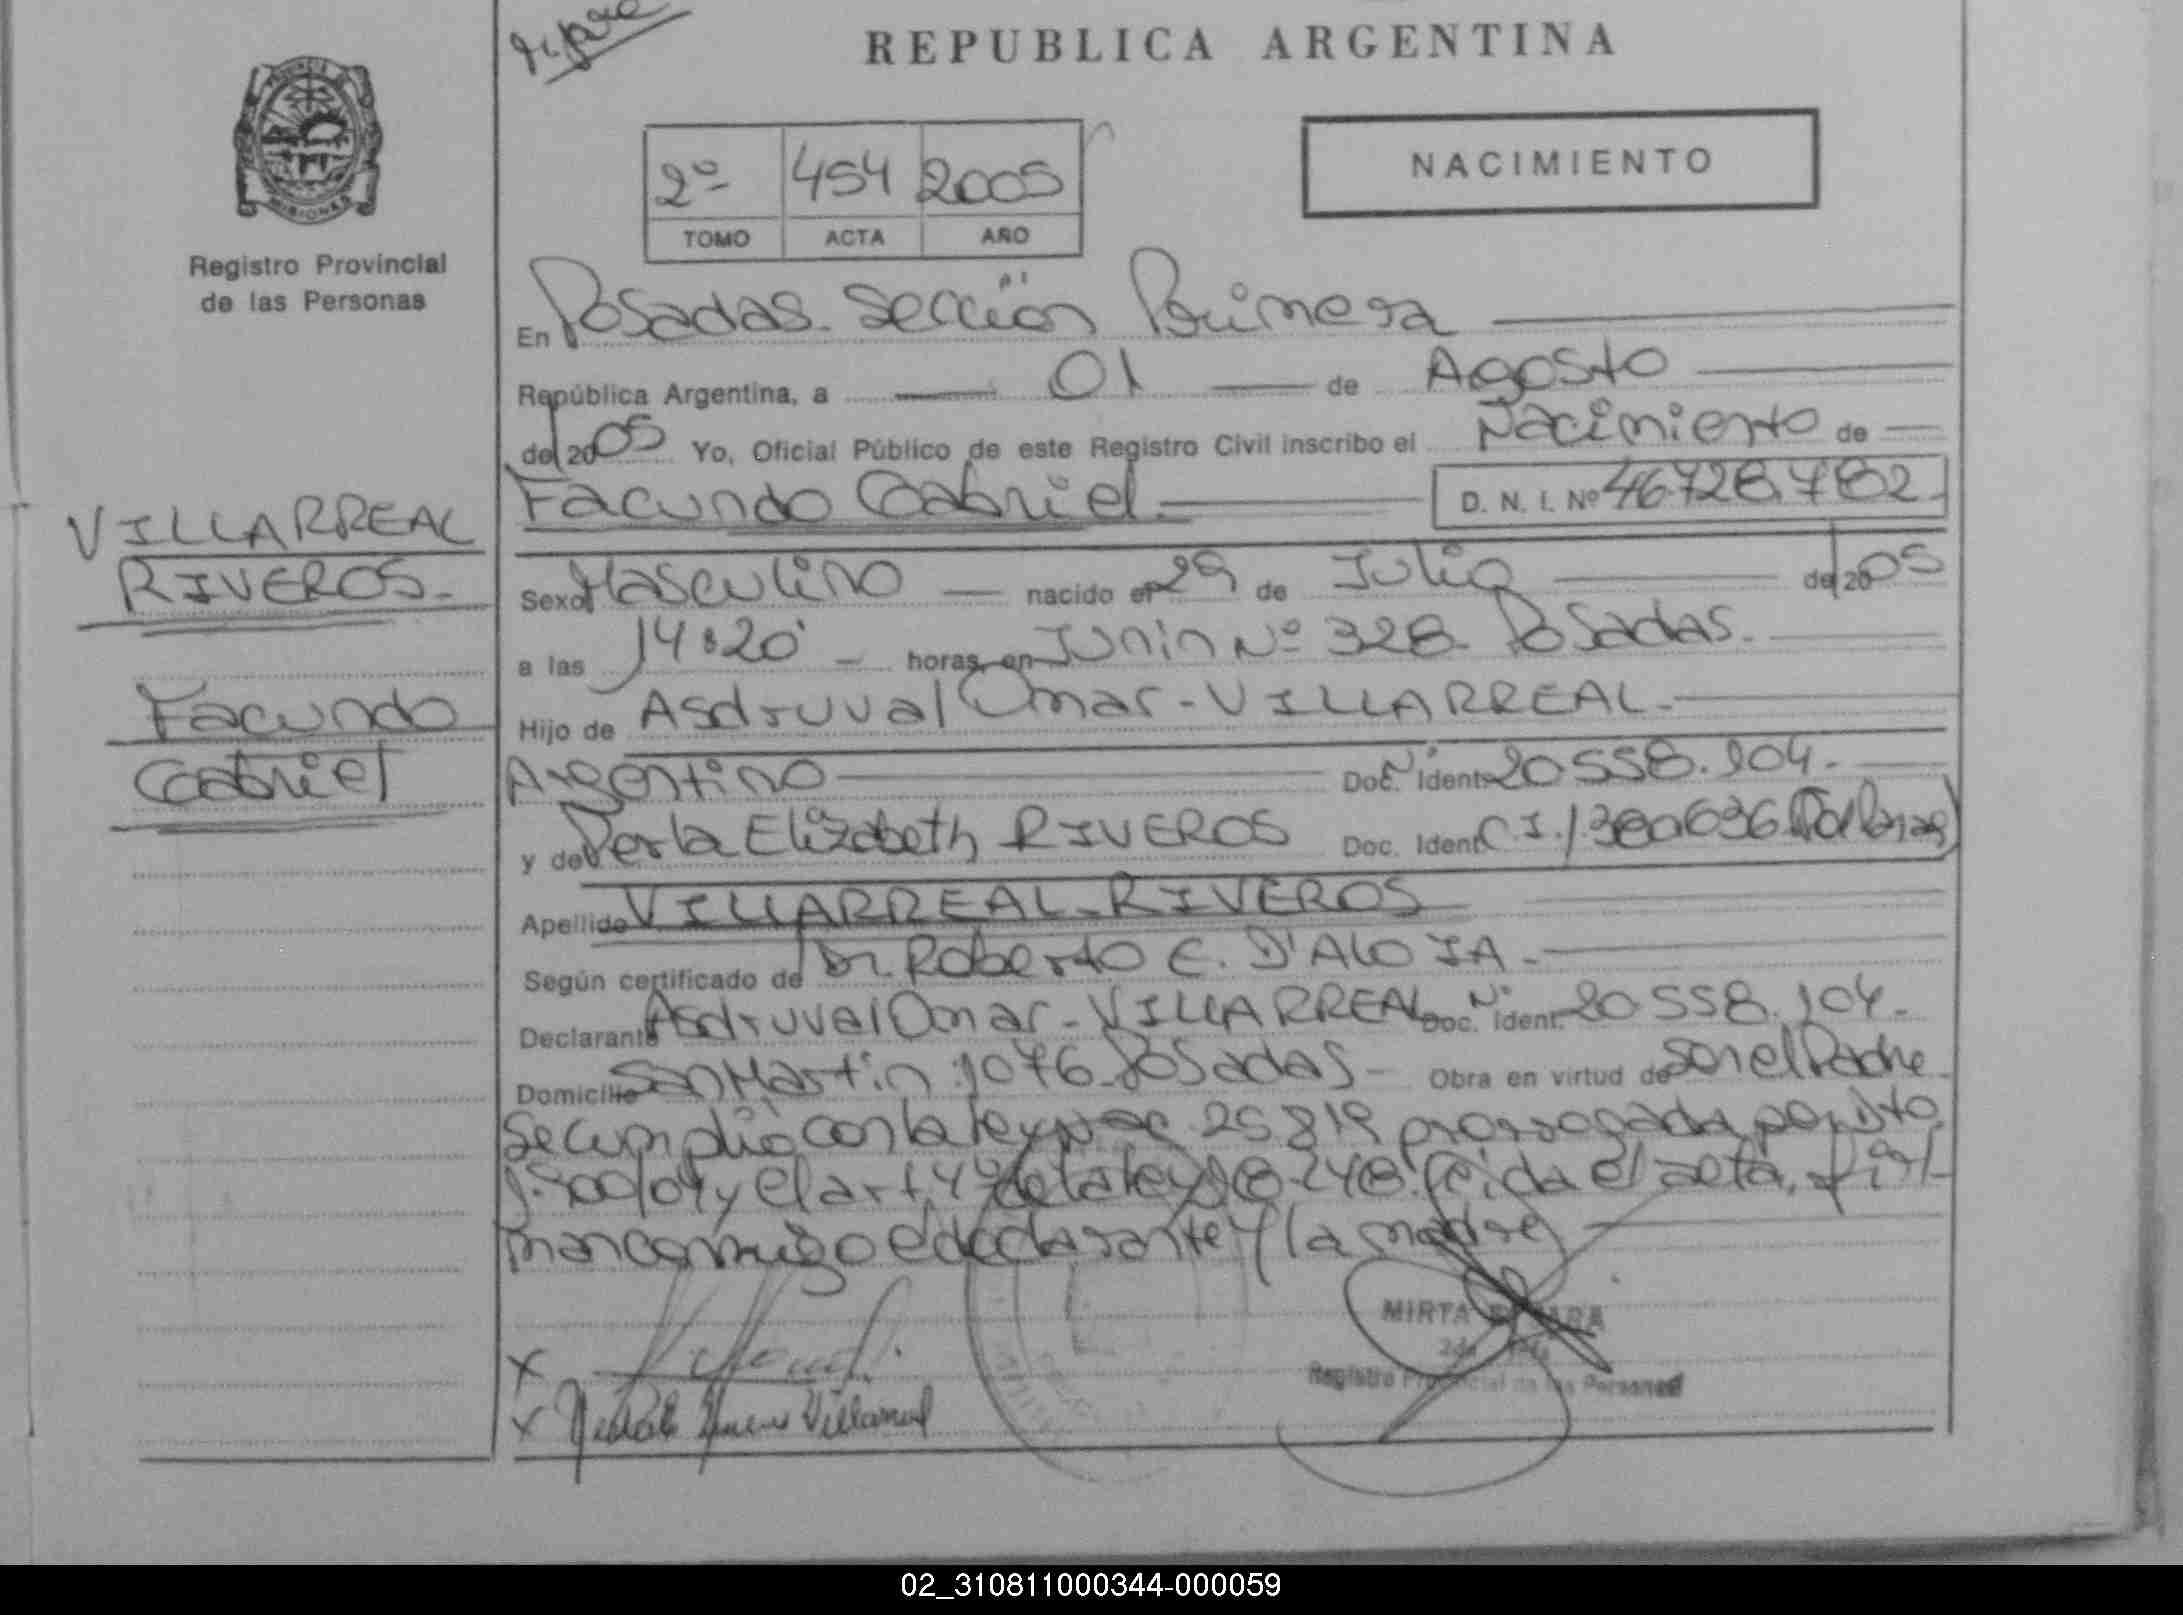 REPUBLICA ARGENTINA
PROVINCIA DE
MISIONES
Registro Provincial
de las Personas
2º 454 2005
TOMO ACTA AÑO
NACIMIENTO
En Posadas. Sección Primera
República Argentina, a 01 de Agosto
del 2005 Yo, Oficial Público de este Registro Civil inscribo el Nacimiento de
Facundo Gabriel. D. N. I. Nº 46.728.782.
VILLARREAL
RIVEROS.
Facundo
Gabriel
Sexo Masculino nacido el 29 de Julio del 2005
a las 14:20' horas, en Junin Nº 328. Posadas.
Hijo de Asdruval Omar - VILLARREAL.
Argentino Doc. Ident. Nº 20.558.104.
y de Perla Elizabeth RIVEROS Doc. Ident. C.I.
Apellido VILLARREAL - RIVEROS
Según certificado de Dr. Roberto C. D'ALOIA.
Declarante Asdruval Omar - VILLARREAL Doc. Ident. Nº 20.558.104.
Domicilio San Martin 1076. Posadas - Obra en virtud de ser el Padre.
Se cumplió con la ley 25.819 prorrogada por Dto.
y el art. 4º de la ley 18.248. leida el acta, fir-
man conmigo el declarante y la madre
MIRTA
Registro Provincial de las Personas
X
X Villarreal
02_310811000344-000059